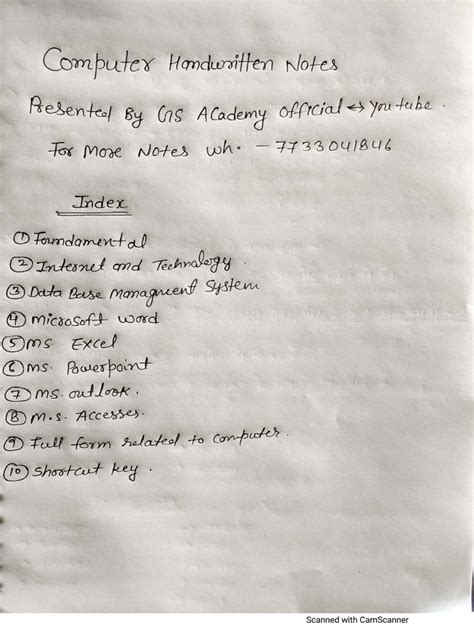 Computer Handwritten Notes
Presented By GS Academy official ↔ You tube.
For More Notes wh. - 7733041846
Index
① Foundamental
② Internet and Technology.
③ Data Base Managment System
④ microsoft word
⑤ ms Excel
⑥ ms. Powerpoint
⑦ ms. outlook.
⑧ m.s. Accesses.
⑨ Full form related to computer.
⑩ Shortcut key.
Scanned with CamScanner